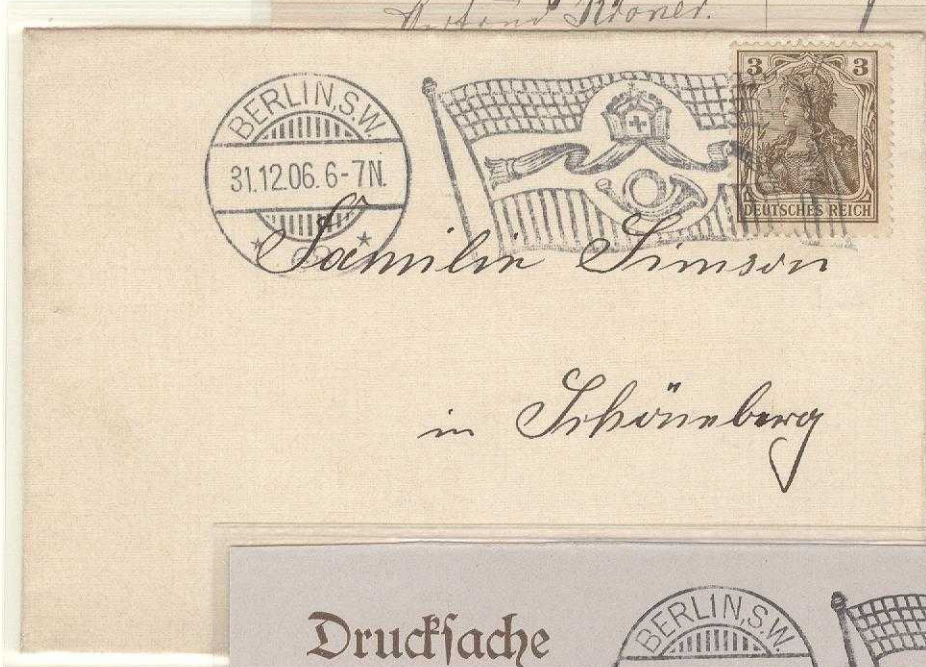 Kroner.
BERLIN,S.W.
31.12.06.6-7N.
3 3
DEUTSCHES REICH
Familie Simson
in Schöneberg
Drucksache
BERLIN,S.W.